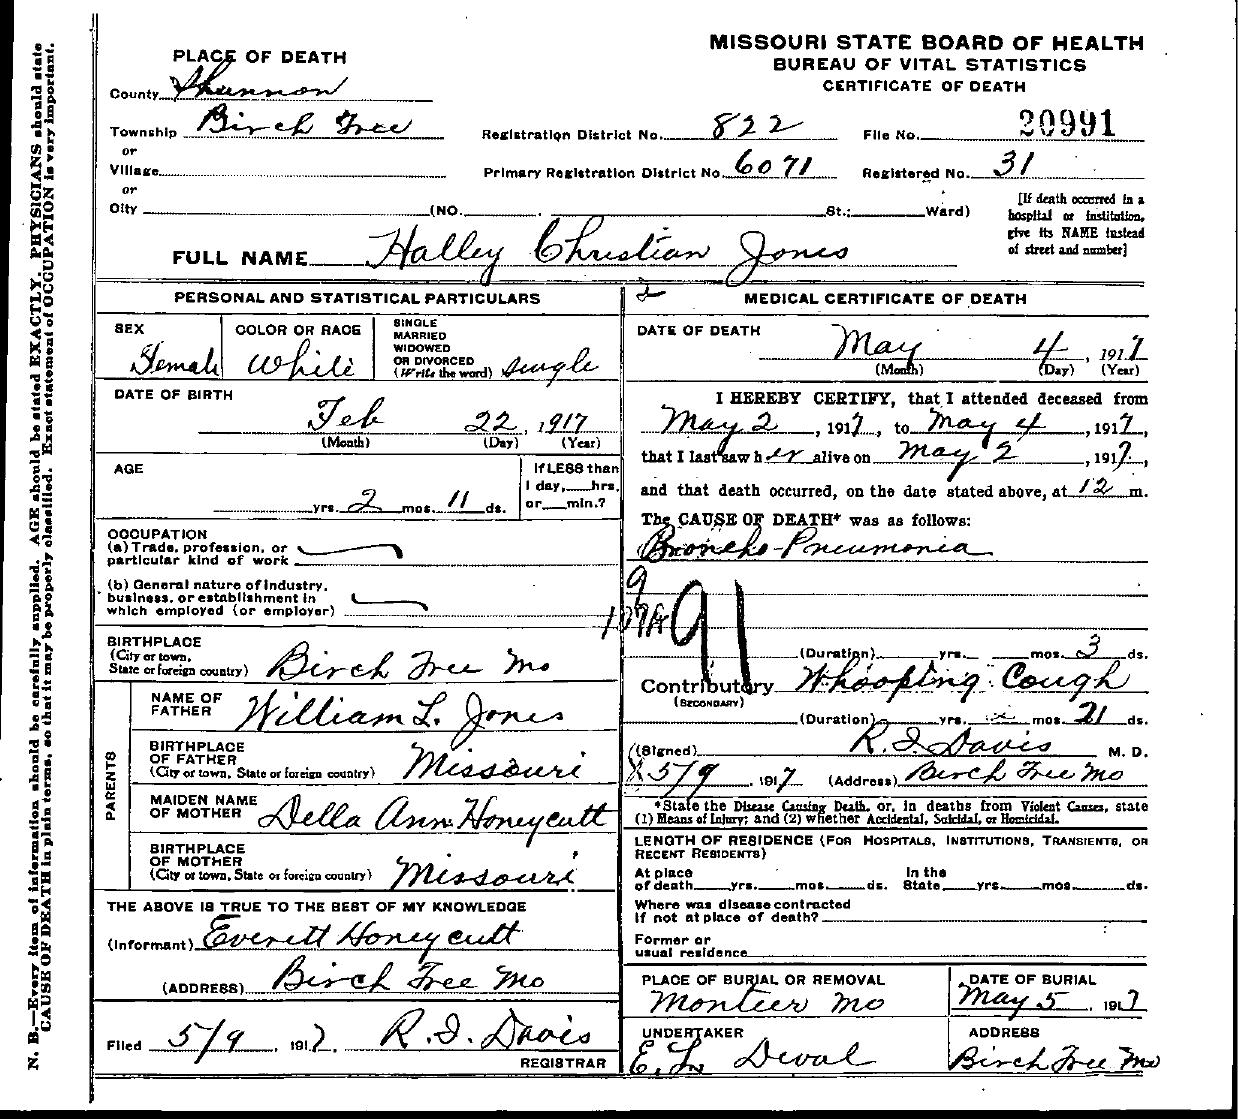 MISSOURI STATE BOARD OF HEALTH
BUREAU OF VITAL STATISTICS
CERTIFICATE OF DEATH
PLACE OF DEATH
County Shannon
Township Birch Tree
or
Village
or
City (NO. St.; Ward)
Registration District No. 822 File No. 20991
Primary Registration District No. 6071 Registered No. 31
[If death occurred in a
hospital or institution,
give its NAME instead
of street and number]
FULL NAME Halley Christian Jones
PERSONAL AND STATISTICAL PARTICULARS
SEX Female
COLOR OR RACE White
SINGLE
MARRIED
WIDOWED
OR DIVORCED
(Write the word) single
DATE OF BIRTH
Feb 22, 1917
(Month) (Day) (Year)
AGE
yrs. 2 mos. 11 ds.
If LESS than
1 day, hrs.
or min.?
OCCUPATION
(a) Trade, profession, or
particular kind of work
(b) General nature of industry,
business, or establishment in
which employed (or employer)
BIRTHPLACE
(City or town,
State or foreign country) Birch Tree Mo
PARENTS
NAME OF
FATHER William L. Jones
BIRTHPLACE
OF FATHER
(City or town, State or foreign country) Missouri
MAIDEN NAME
OF MOTHER Della Ann Honeycutt
BIRTHPLACE
OF MOTHER
(City or town, State or foreign country) Missouri
THE ABOVE IS TRUE TO THE BEST OF MY KNOWLEDGE
(Informant) Everett Honeycutt
(ADDRESS) Birch Tree Mo
Filed 5/9, 1917, R. I. Davis
REGISTRAR
2 MEDICAL CERTIFICATE OF DEATH
DATE OF DEATH
May 4, 1917
(Month) (Day) (Year)
I HEREBY CERTIFY, that I attended deceased from
May 2, 1917, to May 4, 1917,
that I last saw her alive on May 2, 1917,
and that death occurred, on the date stated above, at 12 m.
The CAUSE OF DEATH* was as follows:
Broncho-Pneumonia
9
91
(Duration) yrs. mos. 3 ds.
Contributory Whooping Cough
(SECONDARY)
(Duration) yrs. mos. 21 ds.
(Signed) R. I. Davis M. D.
5/9, 1917 (Address) Birch Tree Mo
*State the Disease Causing Death, or, in deaths from Violent Causes, state
(1) Means of Injury; and (2) whether Accidental, Suicidal, or Homicidal.
LENGTH OF RESIDENCE (FOR HOSPITALS, INSTITUTIONS, TRANSIENTS, OR
RECENT RESIDENTS)
At place In the
of death yrs. mos. ds. State yrs. mos. ds.
Where was disease contracted
if not at place of death?
Former or
usual residence
PLACE OF BURIAL OR REMOVAL
Monteer Mo
DATE OF BURIAL
May 5, 1917
UNDERTAKER
E. L. Deval
ADDRESS
Birch Tree Mo
N. B.—Every item of information should be carefully supplied. AGE should be stated EXACTLY. PHYSICIANS should state
CAUSE OF DEATH in plain terms, so that it may be properly classified. Exact statement of OCCUPATION is very important.